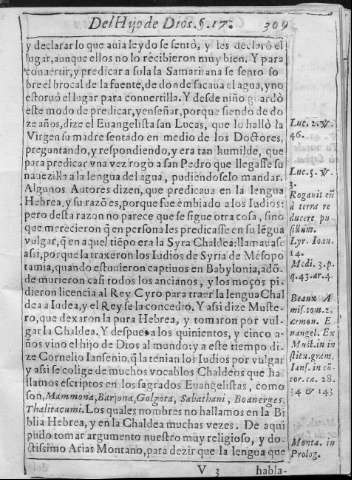 Del Hijo de Dios. §. 17. 309
y declarar lo que auia leydo se sentò, y les declarò el
lugar, aunque ellos no lo recibieron muy bien. Y para
conuertir, y predicar a sola la Samaritana se sento so
bre el brocal de la fuente, de donde sacaua el agua, y no
estoruò el lugar para conuertilla. Y desde niño guardò
este modo de predicar, y enseñar, porque siendo de do
ze años, dize el Euangelista san Lucas, que lo hallò la
Virgen su madre sentado en medio de los Doctores,
preguntando, y respondiendo, y era tan humilde, que
para predicar vna vez rogò a san Pedro que llegasse su
nauezilla a la lengua del agua, pudiendoselo mandar.
Algunos Autores dizen, que predicaua en la lengua
Hebrea, y su razõ es, porque fue embiado a los Iudios:
pero desta razon no parece que se sigue otra cosa, sino
que merecieron q̃ en persona les predicasse en su lẽgua
vulgar, q̃ en aquel tiẽpo era la Syra Chaldea: llamauase
assi, porque la traxeron los Iudios de Syria de Mesopo
tamia, quando estuuieron captiuos en Babylonia, adõ-
de murieron casi todos los ancianos, y los moços pi-
dieron licencia al Rey Cyro para traer la lengua Chal
dea a Iudea, y el Rey se la concedio. Y assi dize Muste-
ro, que dexaron la pura Hebrea, y tomaron por vul-
gar la Chaldea. Y despues a los quinientos, y cinco a
ños vino el hijo de Dios al mundo: y a este tiempo di-
ze Cornelio Iansenio, q̃ la tenian los Iudios por vulgar
y assi se colige de muchos vocablos Chaldeos que ha
llamos escriptos en los sagrados Euangelistas, como
son, Mammona, Barjona, Golgota, Sabathani, Boanerges,
Thalitacumi. Los quales nombres no hallamos en la Bi
blia Hebrea, y en la Chaldea muchas vezes. De aqui
pudo tomar argumento nuestro muy religioso, y do-
ctissimo Arias Montano, para dezir que la lengua que
V 3 habla-
Luc. 2. ℣.
46.
Luc. 5. ℣.
3.
Rogauit eũ
à terra re
ducere pu
sillum.
Lyr. Ioan.
14.
Medi. 3. p.
q. 43. ar. 4.
Beaux A
mis. tom. 2.
armon. E
uangel. Ex
Must. in in
stitu. gram.
Ians. in cõ
cor. ca. 28.
34 & 143
Monta. in
Prolog.